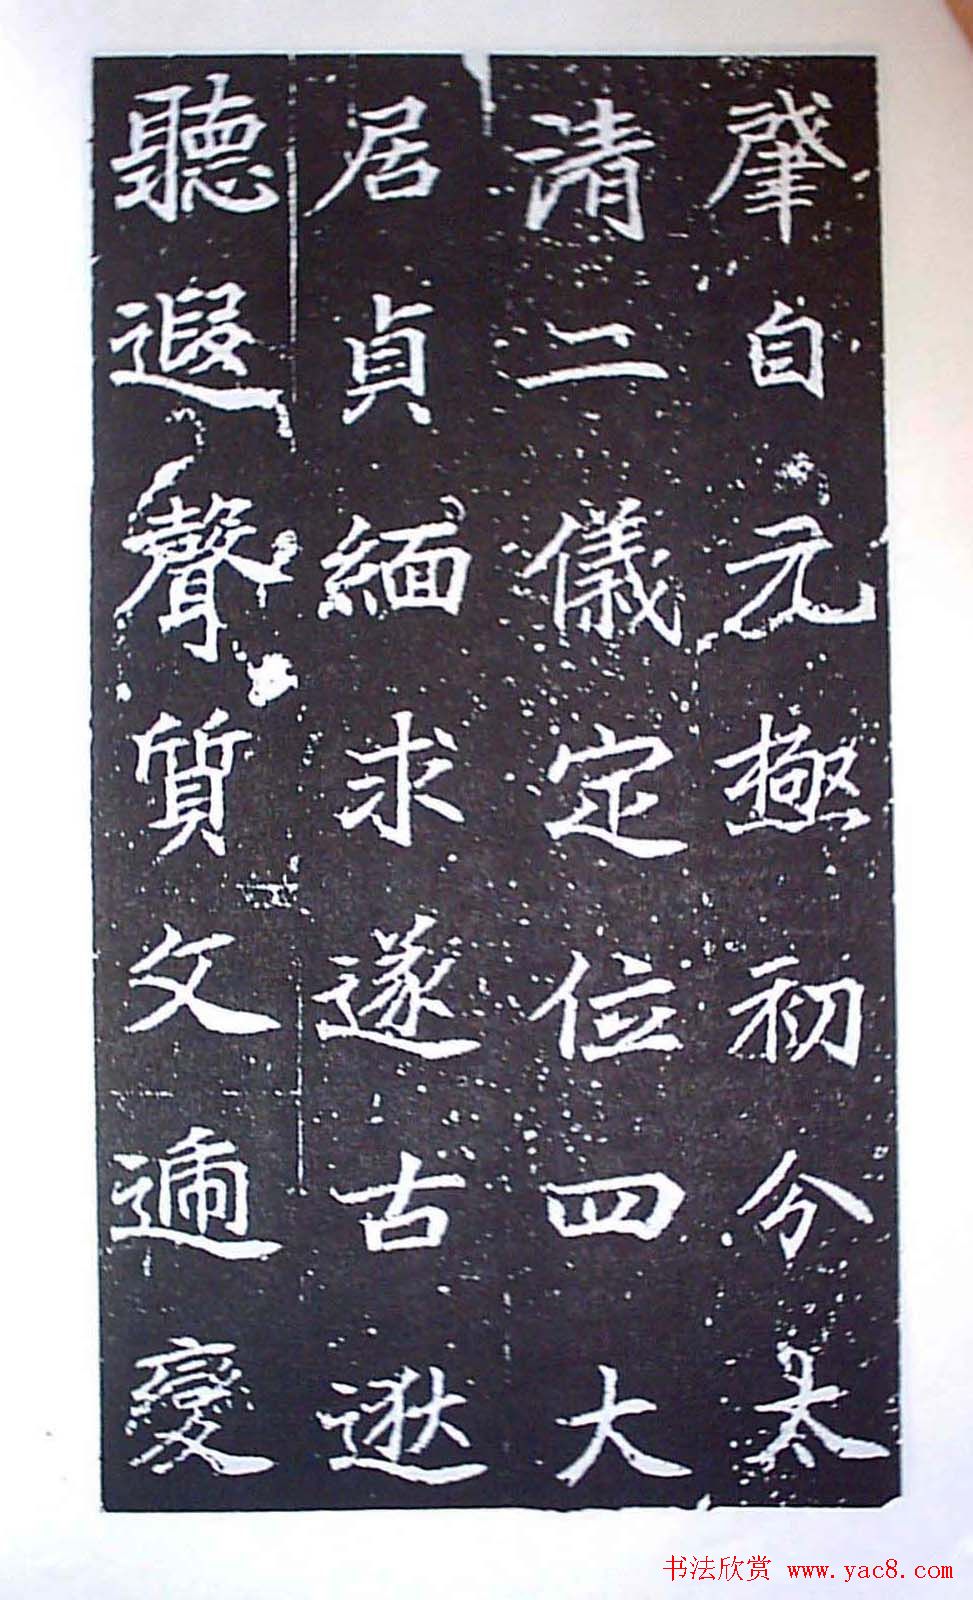 肇自元極初分太
清二儀定位四大
居貞緬求遂古逖
聽遐聲質文遞變
书法欣赏 www.yac8.com